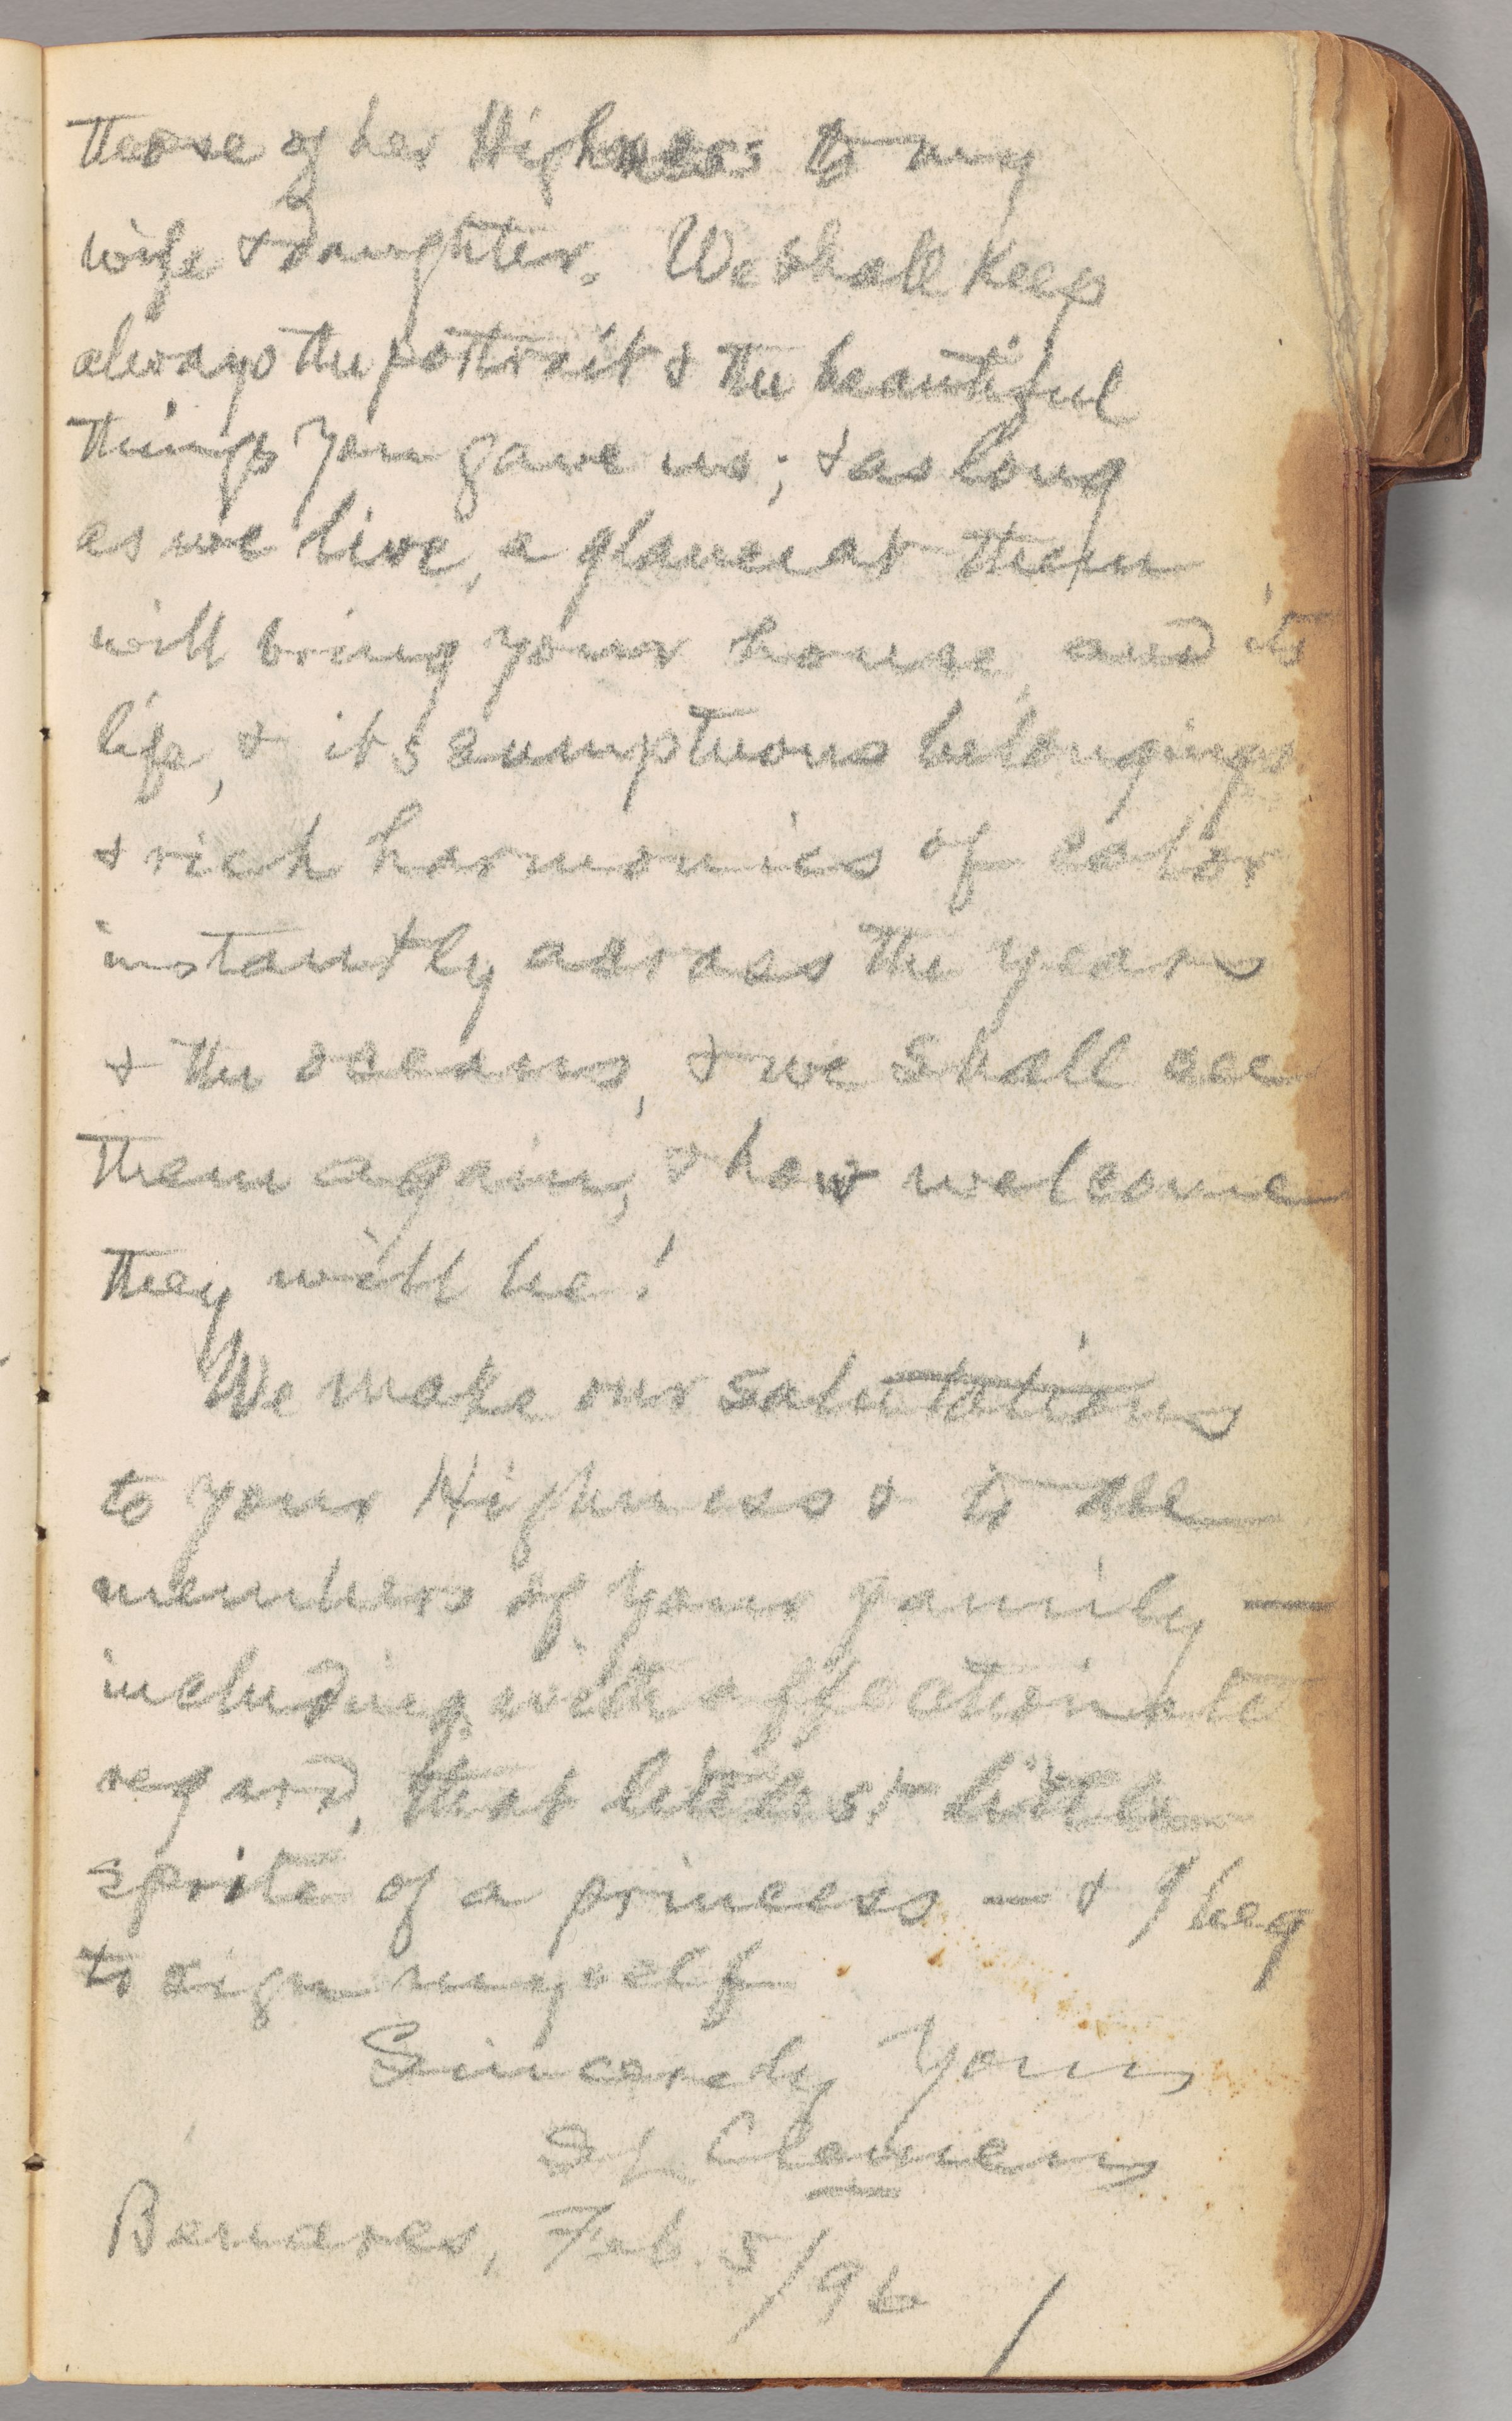 those of her Highness to my
wife & daughter. We shall keep
always the portrait & the beautiful
things you gave us; & as long
as we live, a glance at them
will bring your house, and its
life, & its sumptuous belongings
& rich harmonies of color
instantly across the years
& the oceans, & we shall see
them again, & how welcome
they will be!
We make our salutations
to your Highness & to all
members of your family —
including, with affectionate
regard, that littlest little
sprite of a princess — & I beg
to sign myself
Sincerely Yours
S L Clemens
Benares, Feb. 5/96